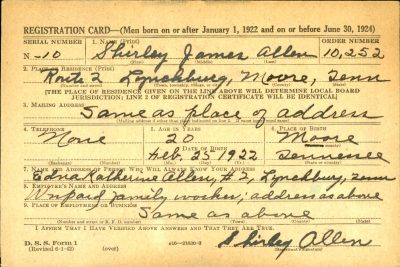 REGISTRATION CARD—(Men born on or after January 1, 1922 and on or before June 30, 1924)
SERIAL NUMBER 1. NAME (Print) ORDER NUMBER
N-10 Shirley James Allen 10,252
(First) (Middle) (Last)
2. PLACE OF RESIDENCE (Print)
Route 2 Lynchburg, Moore, Tenn
(Number and street) (Town, township, village, or city) (County) (State)
[THE PLACE OF RESIDENCE GIVEN ON THE LINE ABOVE WILL DETERMINE LOCAL BOARD
JURISDICTION; LINE 2 OF REGISTRATION CERTIFICATE WILL BE IDENTICAL]
3. MAILING ADDRESS
Same as place of address
[Mailing address if other than place indicated on line 2. If same insert word same]
4. TELEPHONE 5. AGE IN YEARS 6. PLACE OF BIRTH
None 20 Moore
DATE OF BIRTH (Town or county)
Feb, 25 1922 Tennessee
(Exchange) (Number) (Mo.) (Day) (Yr.) (State or country)
7. NAME AND ADDRESS OF PERSON WHO WILL ALWAYS KNOW YOUR ADDRESS
Edna Katherine Allen, #2, Lynchburg, Tenn
8. EMPLOYER'S NAME AND ADDRESS
Unpaid family worker; address as above
9. PLACE OF EMPLOYMENT OR BUSINESS
Same as above
(Number and street or R. F. D. number) (Town) (County) (State)
I AFFIRM THAT I HAVE VERIFIED ABOVE ANSWERS AND THAT THEY ARE TRUE.
D. S. S. Form 1
(Revised 6-1-42) (over) Shirley Allen